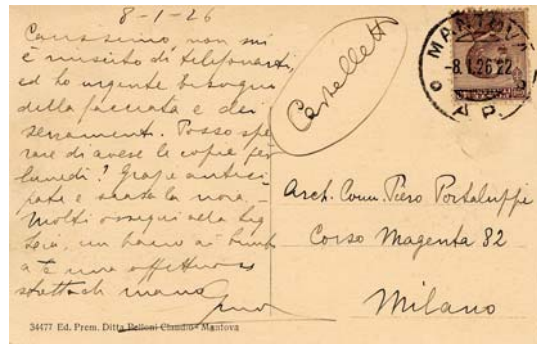 8-1-26
Carissimo, non mi
è riuscito di telefonarti,
ed ho urgente bisogno
della facciata e dei
serramenti. Posso spe
rare di avere le copie per
lunedì? Grazie antici
pate e scusa la noia, -
Molti ossequi alla Sig
nora, un bacio ai bimbi
a te una affettuosa
stretta di mano
Castelletti
MANTOVA
-8.1.26 22
A P.
Arch. Comm. Piero Portaluppi
Corso Magenta 82
Milano
34477 Ed. Prem. Ditta Belloni Claudio - Mantova